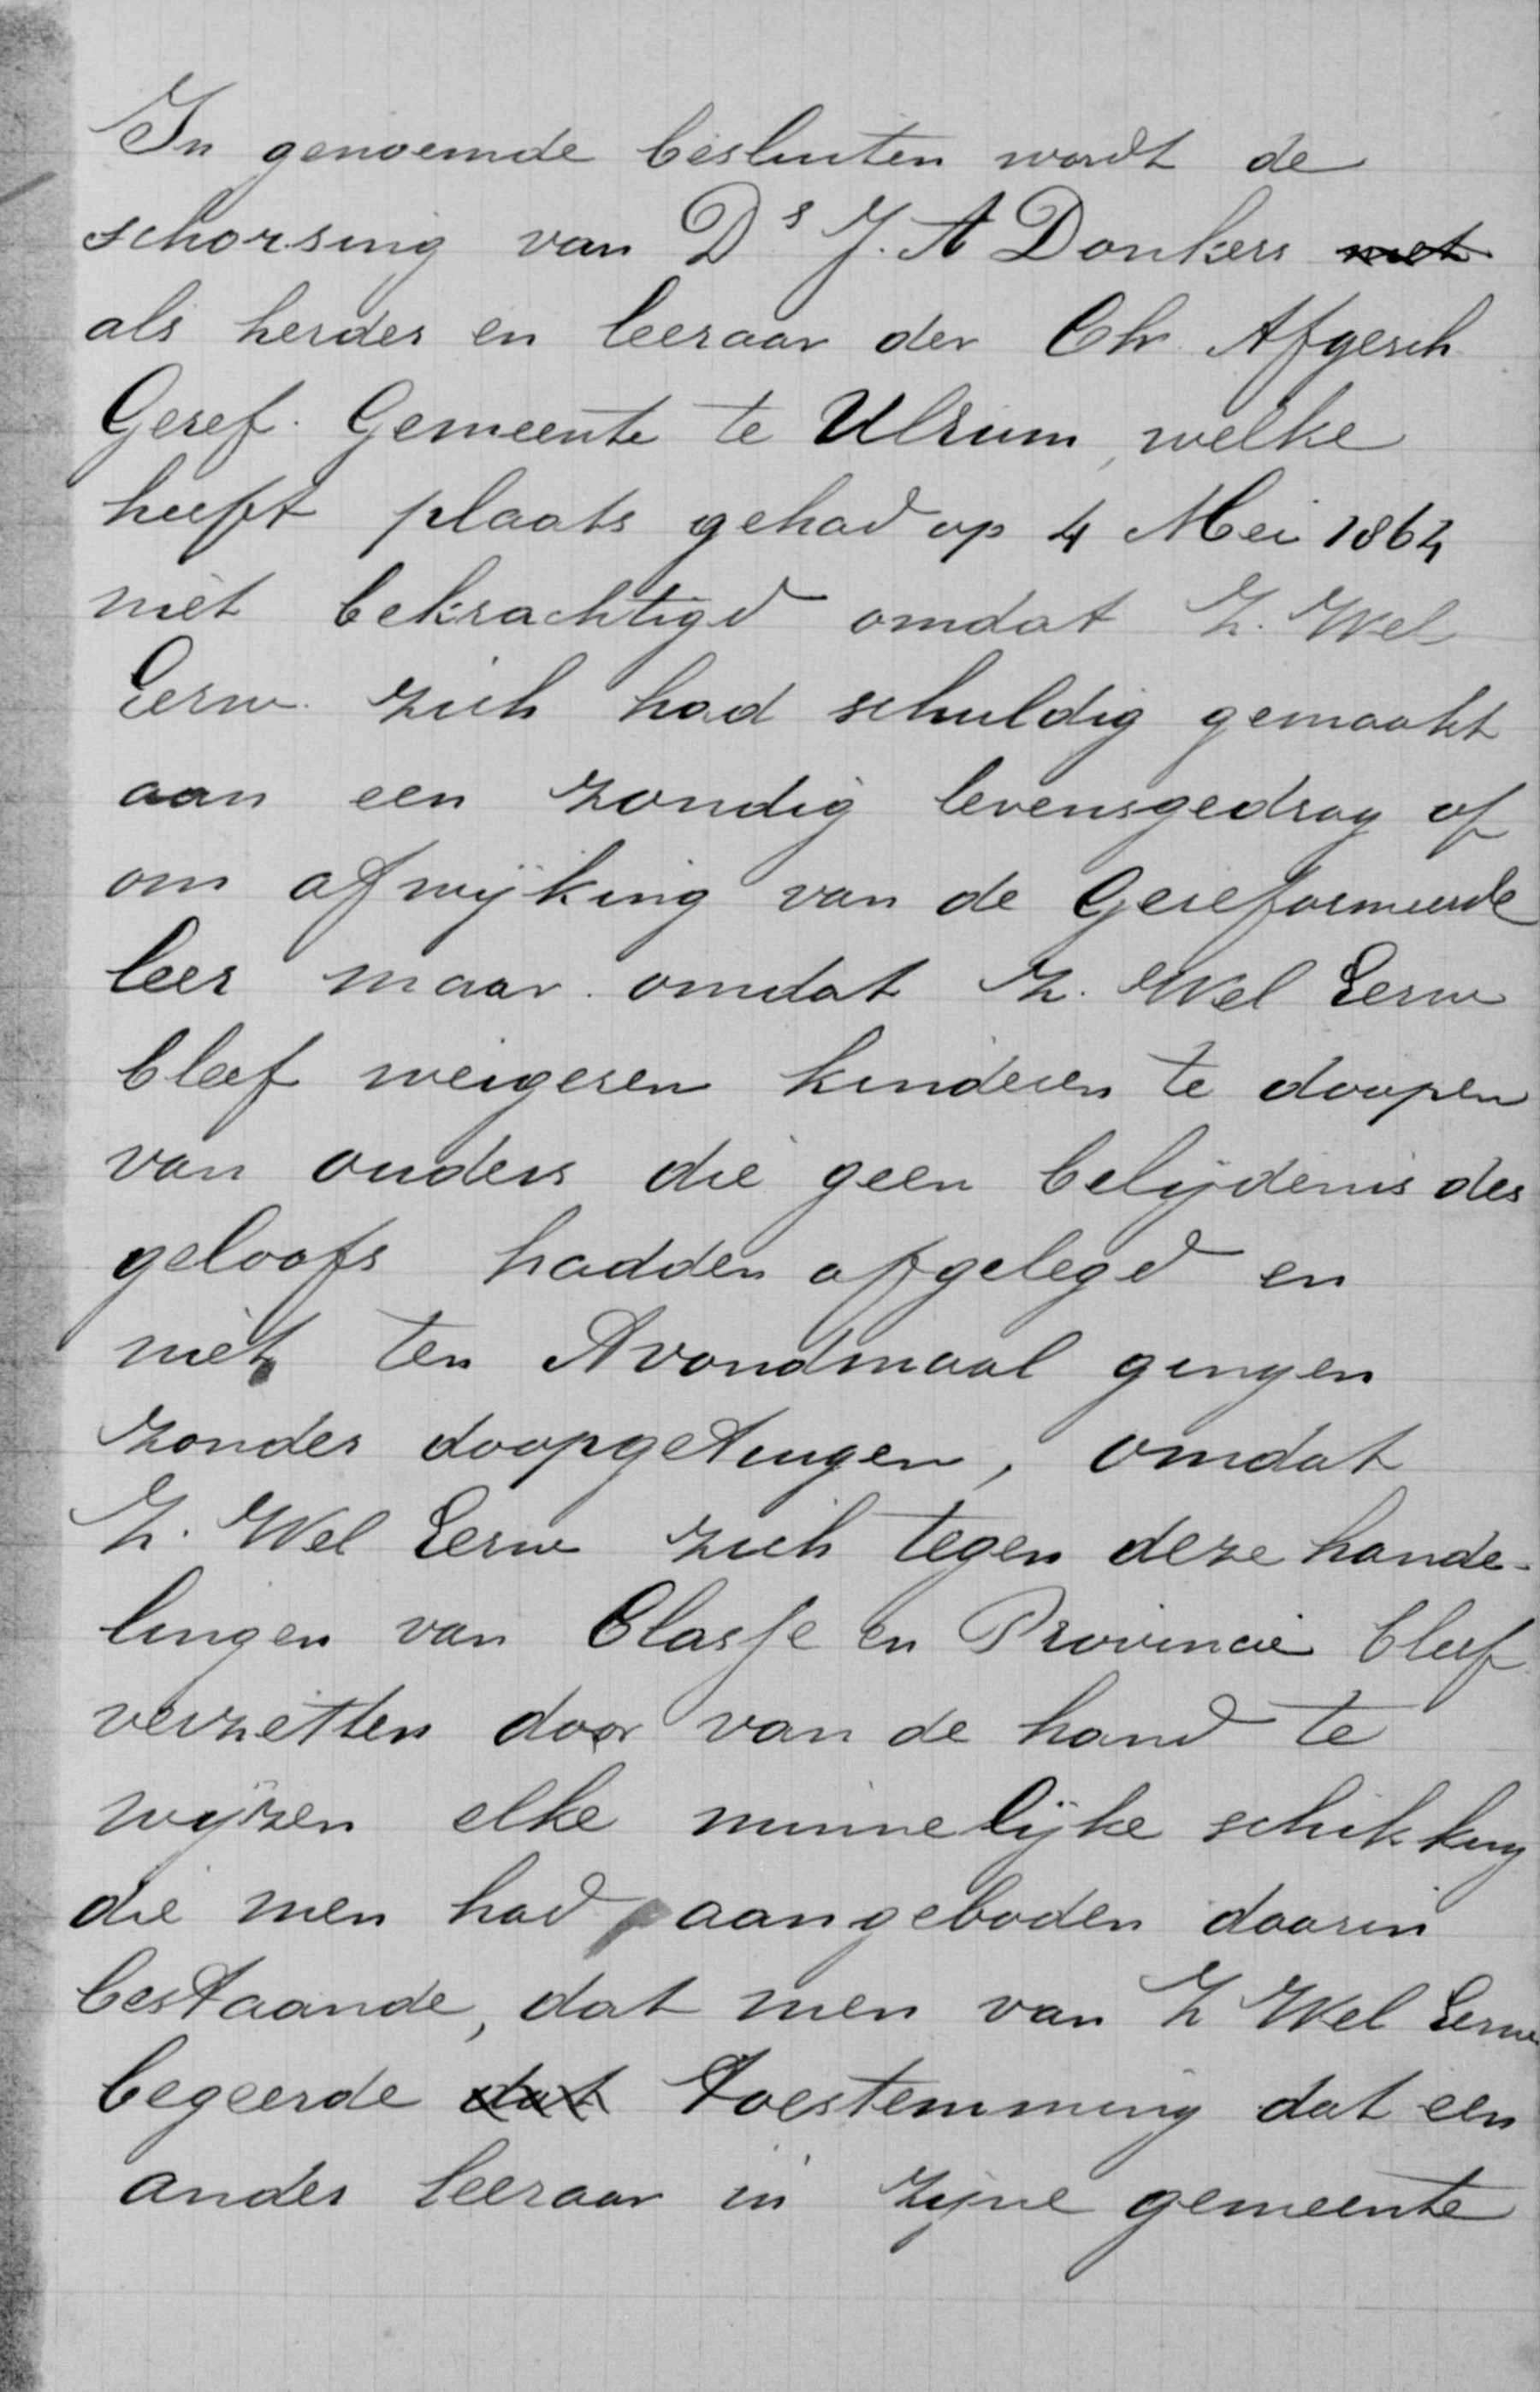 In genoemde besluiten wordt de
schorsing van Ds J. A Donkers niet
als herder en leeraar der Chr. Afgesch
Geref. Gemeente te Ulrum, welke
heeft plaats gehad op 4 Mei 1864
niet bekrachtigd omdat Z. Wel
Eerw. zich had schuldig gemaakt
aan een zondig levensgedrag of
om afwijking van de Gereformeerde
leer maar omdat Z. Wel Eerw
bleef weigeren kinderen te doopen
van ouders die geen belijdenis des
geloofs hadden afgelegd en
niet ten Avondmaal gingen
zonder doopgetuigen, omdat
Z. Wel Eerw zich tegen deze hande-
lingen van Classe en Provincie bleef
verzetten door van de hand te
wijzen elke minnelijke schikking
die men had aangeboden daarin
bestaande, dat men van Z Wel Eerw
begeerde dat toestemming dat een
ander leeraar in zijne gemeente